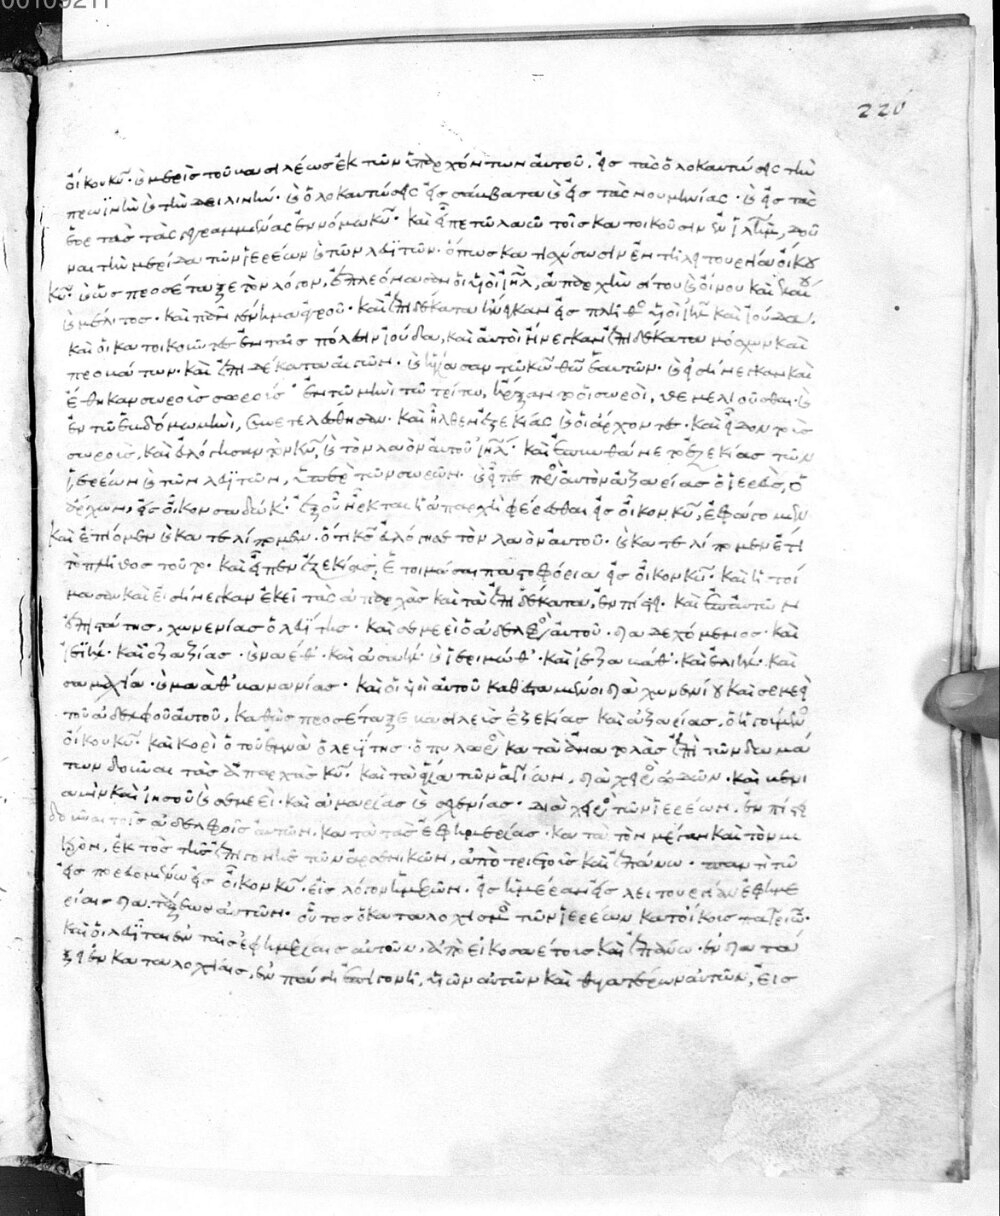 220
οἴκου κυ. καὶ μερὶς τοῦ βασιλέως ἐκ τῶν ὑπαρχόντων αὐτοῦ. εἰς τὰς ὁλοκαυτώσεις τὴν
πρωϊνὴν καὶ τὴν δειλινήν. καὶ ὁλοκαυτώσεις εἰς σάββατα καὶ εἰς τὰς νουμηνίας. καὶ εἰς τὰς
ἑορτὰς τὰς γεγραμμένας ἐν νόμω κυ. καὶ εἶπε τῶ λαῶ τοῖς κατοικοῦσιν ἐν ιλημ, δοῦ
ναι τὴν μερίδα τῶν ἱερέων καὶ τῶν λευϊτῶν. ὅπως κατισχύσωσιν ἐν τῆ λειτουργία οἴκου
κυ. καὶ ὡς προσέταξε τὸν λόγον, ἐπλεόνασαν οἱ υἱοὶ ιηλ, ἀπαρχὴν σίτου καὶ οἴνου καὶ ἐλαίου
καὶ μέλιτος. καὶ πᾶν γέννημα ἀγροῦ. καὶ ἐπιδέκατα ἤνεγκαν εἰς πλῆθος υἱοὶ ιηλ καὶ ἰούδα.
καὶ οἱ κατοικοῦντες ἐν ταῖς πόλεσιν ἰούδα, καὶ αὐτοὶ ἤνεγκαν ἐπιδέκατα μόσχων καὶ
προβάτων. καὶ ἐπιδέκατα αἰγῶν. καὶ ἡγίασαν τῶ κω θω ἑαυτῶν. καὶ εἰσήνεγκαν καὶ
ἔθηκαν σωροὺς σωρούς. ἐν τῶ μηνὶ τῶ τρίτω, ἤρξαντο οἱ σωροὶ, θεμελιοῦσθαι. καὶ
ἐν τῶ ἑβδόμω μηνὶ, συνετελέσθησαν. καὶ ἦλθεν ἐζεκίας καὶ οἱ ἄρχοντες. καὶ εἶδον τοὺς
σωροὺς, καὶ εὐλόγησαν τὸν κν, καὶ τὸν λαὸν αὐτοῦ ιηλ. καὶ ἐπυνθάνετο ἐζεκίας τῶν
ἱερέων καὶ τῶν λευϊτῶν, ὑπὲρ τῶν σωρῶν. καὶ εἶπε πρὸς αὐτὸν ἀζαρίας ὁ ἱερεὺς, ὁ
ἄρχων, εἰς οἶκον σαδώκ. ἐξ οὗ ἦρκται ἡ ἀπαρχὴ φέρεσθαι εἰς οἶκον κυ, ἐφάγομεν
καὶ ἐπίομεν καὶ κατελίπομεν. ὅτι κς εὐλόγησε τὸν λαὸν αὐτοῦ. καὶ κατελίπομεν ἔτι
τὸ πλῆθος τοῦτο. καὶ εἶπεν ἐζεκίας, ἑτοιμάσαι παστοφόρια εἰς οἶκον κυ. καὶ ἡτοί
μασαν καὶ εἰσήνεγκαν ἐκεῖ τὰς ἀπαρχὰς καὶ τὰ ἐπιδέκατα, ἐν πίστει. καὶ ἐπ' αὐτῶν
ἐπιστάτης, χωνενίας ὁ λευΐτης. καὶ σεμεεὶ ὁ ἀδελφὸς αὐτοῦ. διαδεχόμενος. καὶ
ἰεϊὴλ. καὶ ὀζαζίας. καὶ μαέθ. καὶ ἀσαὴλ. καὶ ἱεριμώθ. καὶ ἰεζαβάθ. καὶ ἐλιὴλ. καὶ
σαμαχία. καὶ μαὰθ. βαναρίας. καὶ οἱ υἱοὶ αὐτοῦ καθεσταμένοι διὰ χωνενίου καὶ σεμεεὶ
τοῦ ἀδελφοῦ αὐτοῦ, καθὼς προσέταξε βασιλεὺς ἐζεκίας καὶ ἀζαρίας, ὁ ἡγούμενος
οἴκου κυ. καὶ κορὶ ὁ τοῦ ἰεμνὰ ὁ λευΐτης. ὁ πυλωρὸς κατὰ ἀνατολὰς ἐπὶ τῶν δομά
των δοῦναι τὰς ἀπαρχὰς κυ. καὶ τὰ ἅγια τῶν ἁγίων, διὰ χειρὸς ὀδὼν. καὶ βενι
αμὶν καὶ ἰησοῦ καὶ σεμεεὶ. καὶ ἀμαρίας καὶ σεχενίας. διὰ χειρὸς τῶν ἱερέων. ἐν πίστει
δοῦναι τοῖς ἀδελφοῖς αὐτῶν. κατὰ τὰς ἐφημερίας. κατὰ τὸν μέγαν καὶ τὸν μι
κρόν, ἐκτὸς τῆς ἐπιγονῆς τῶν ἀρσενικῶν, ἀπὸ τριετοῦς καὶ ἐπάνω. παντὶ τῶ
εἰσπορευομένω εἰς οἶκον κυ. εἰς λόγον ἡμερῶν. εἰς ἡμέραν εἰς λειτουργίαν ἐφημε
ρίαις διατάξεως αὐτῶν. οὗτος ὁ καταλοχισμὸς τῶν ἱερέων κατ' οἴκους πατριῶν.
καὶ οἱ λευῖται ἐν ταῖς ἐφημερίαις αὐτῶν, ἀπὸ εἰκοσαετοῦς καὶ ἐπάνω. ἐν διατά
ξει ἐν καταλοχίαις, ἐν πάση ἐπιγονῆ, υἱῶν αὐτῶν καὶ θυγατέρων αὐτῶν, εἰς